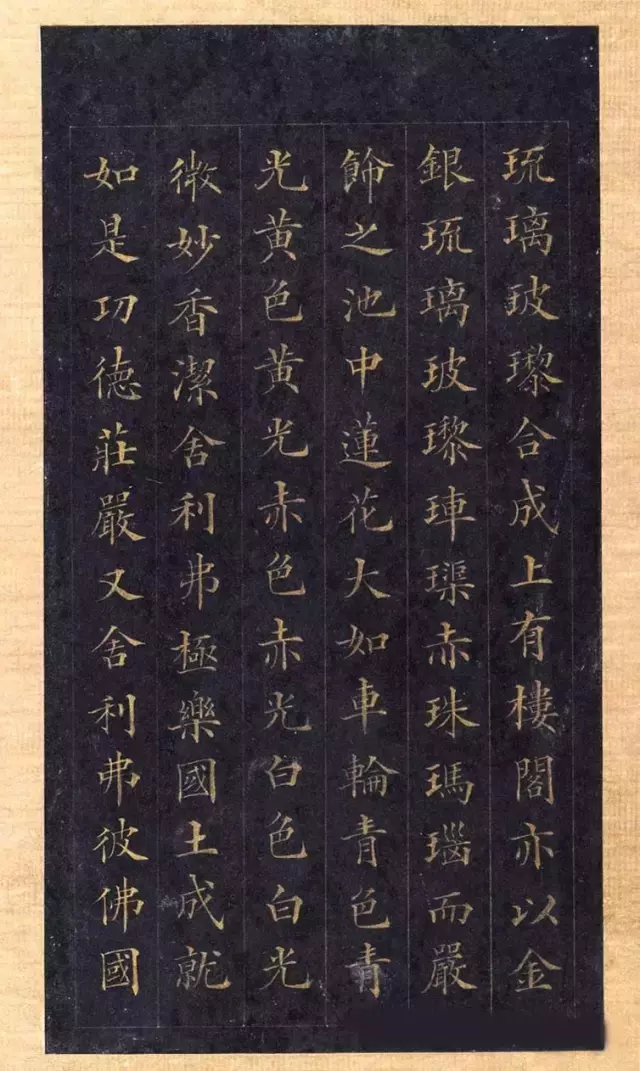 琉璃玻瓈合成上有樓閣亦以金
銀琉璃玻瓈硨磲赤珠瑪瑙而嚴
飾之池中蓮花大如車輪青色青
光黃色黃光赤色赤光白色白光
微妙香潔舍利弗極樂國土成就
如是功德莊嚴又舍利弗彼佛國